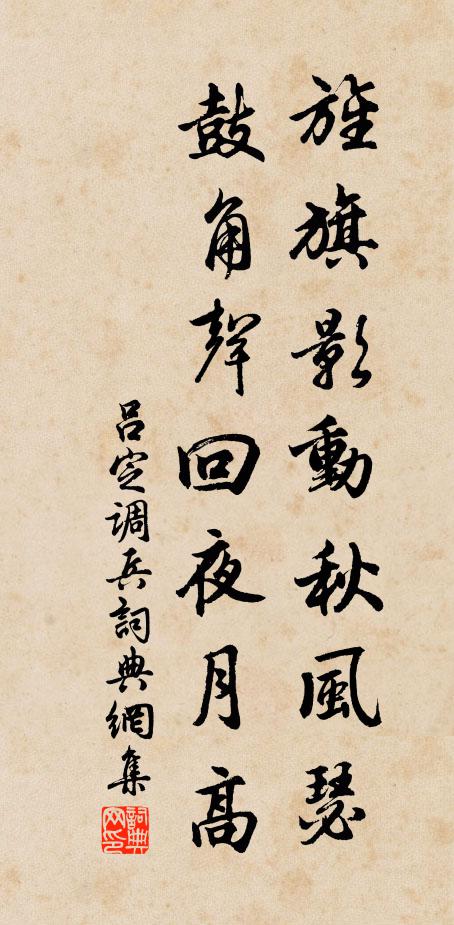 旌旗影動秋風瑟
鼓角聲回夜月高
吕定調兵詞典網集
詞典網印